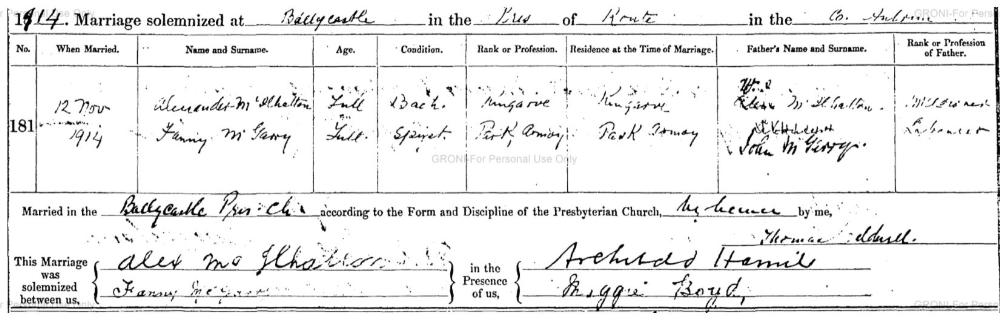 1914. Marriage solemnized at Ballycastle in the Pres of Route in the Co. Antrim
No. When Married. Name and Surname. Age. Condition. Rank or Profession. Residence at the Time of Marriage. Father's Name and Surname. Rank or Profession of Father.
181
12 Nov Alexander McIlhatton Full Bach. McIlhatton
1914 Fanny McGarry Full Spinst. Park, Armoy Park Armoy Labourer
John McGarry.
GRONI-For Personal Use Only
Married in the Ballycastle Pres. Ch. according to the Form and Discipline of the Presbyterian Church, by license by me,
Thomas
This Marriage was solemnized between us,
Alex McIlhatton
Fanny McGarry
in the Presence of us,
Archibald Hamil
Maggie Boyd,